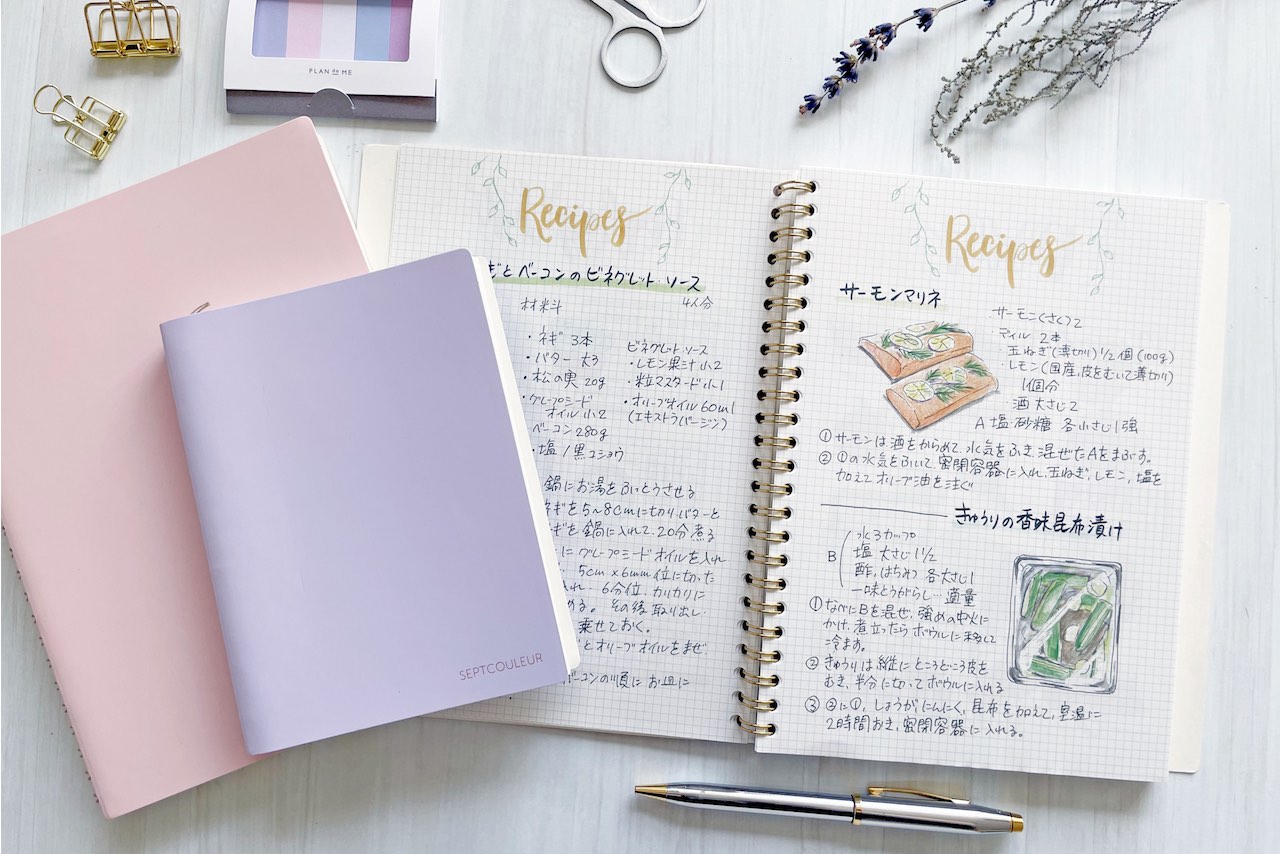 PLAN de ME
SEPTCOULEUR
Recipes
ギとベーコンのビネグレット・ソース
4人分
材料
・ネギ 3本
・バター 大3
・松の実 20g
・グレープシード
オイル 小2
ベーコン 280g
・塩/黒コショウ
ビネグレットソース
・レモン果汁 小2
・粒マスタード 小1
・オリーブオイル 60ml
(エキストラバージン)
鍋にお湯をふっとうさせる
ネギを5~8cmに切り、バターと
ギを鍋に入れて、20分煮る
にグレープシードオイルを入れ
5cm×6mm位に切った
入れ、6分位、カリカリに
める。その後取り出し、
乗せておく。
とオリーブオイルをまぜ、
ベーコンの順にお皿に
Recipes
サーモンマリネ
サーモン(さく) 2
ディル 2本
玉ねぎ(薄切り) 1/2個(100g)
レモン(国産,皮をむいて薄切り)
1個分
酒 大さじ2
A 塩・砂糖 各小さじ1強
① サーモンは酒をからめて、水気をふき、混ぜたAをまぶす。
② ①の水気をふいて、密閉容器に入れ、玉ねぎ、レモン、塩を
加えてオリーブ油を注ぐ
きゅうりの香味昆布漬け
B
水3カップ
塩 大さじ1 1/2
酢,はちみつ 各大さじ1
一味とうがらし… 適量
① なべにBを混ぜ、強めの中火に
かけ、煮立ったらボウルに移して
冷ます。
② きゅうりは縦にところどころ皮を
おき、半分に切ってボウルに入れる
③ ②に①、しょうが、にんにく、昆布を加えて、室温に
2時間おき、密閉容器に入れる。